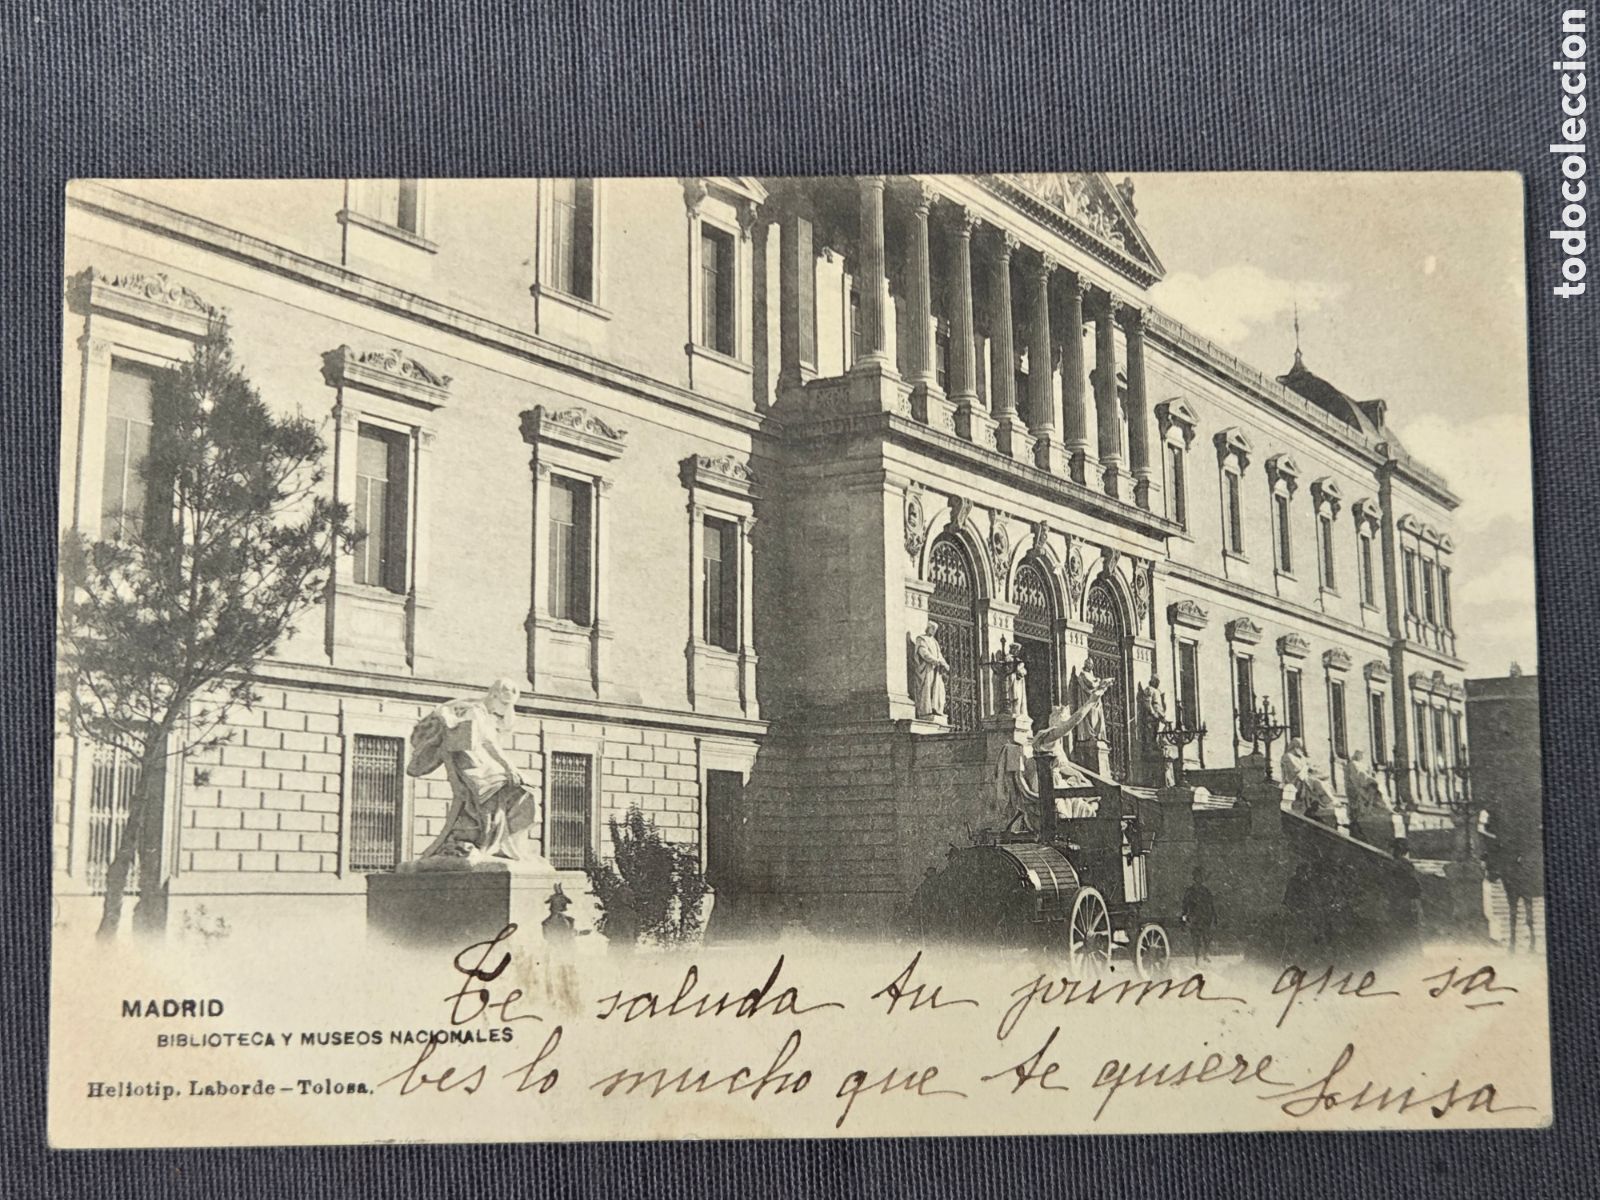 todocoleccion
MADRID
BIBLIOTECA Y MUSEOS NACIONALES
Heliotip. Laborde-Tolosa.
Te saluda tu prima que sa
bes lo mucho que te quiere Luisa